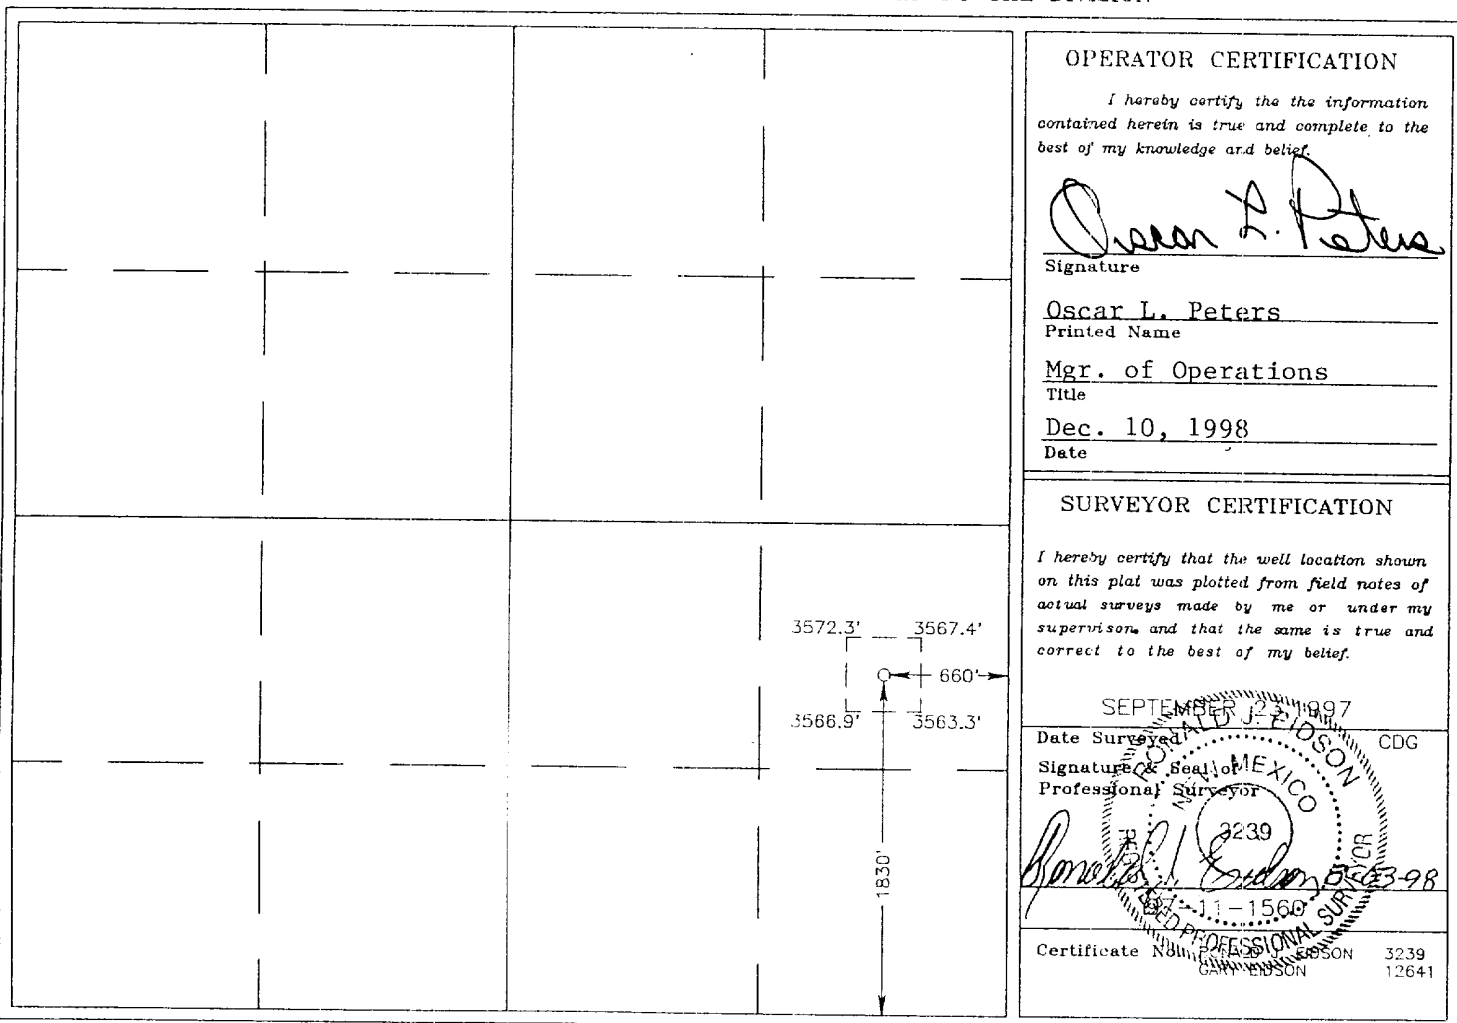 OPERATOR CERTIFICATION
I hereby certify the the information
contained herein is true and complete to the
best of my knowledge and belief.
Oscar L. Peters
Signature
Oscar L. Peters
Printed Name
Mgr. of Operations
Title
Dec. 10, 1998
Date
SURVEYOR CERTIFICATION
I hereby certify that the well location shown
on this plat was plotted from field notes of
actual surveys made by me or under my
supervison, and that the same is true and
correct to the best of my belief.
SEPTEMBER 23, 1997
Date Surveyed
CDG
Signature & Seal of
Professional Surveyor
RONALD J. EIDSON
NEW MEXICO
3239
REGISTERED PROFESSIONAL SURVEYOR
Ronald J. Eidson
03-98
97-11-1560
Certificate No. RONALD J. EIDSON 3239
GARY EIDSON 12641
3572.3' 3567.4'
660'
3566.9' 3563.3'
1830'